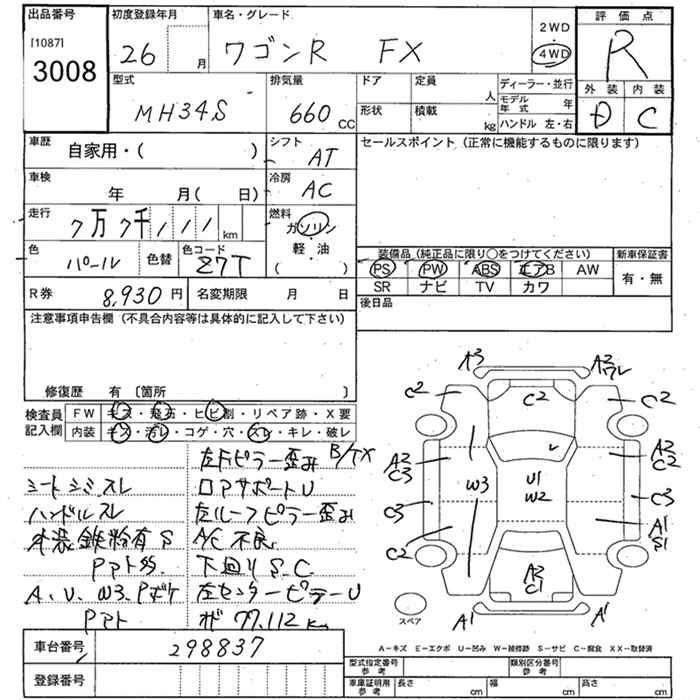 出品番号 初度登録年月 車名・グレード 2WD 評価点
[1087]
3008 26 月 ワゴンR FX 4WD R
型式 排気量 ドア 定員 人 ディーラー・並行 外装 内装
MH34S 660 CC 形状 積載 kg モデル年式 年 D C
ハンドル 左・右
車歴 自家用・( ) シフト AT セールスポイント (正常に機能するものに限ります)
車検 年 月( 日) 冷房 AC
走行 7万7千 km 燃料 ガソリン
軽・油
( )
色 パール 色替 色コード Z7T
装備品 (純正品に限り○をつけてください) 新車保証書
PS PW ABS エアB AW 有・無
SR ナビ TV カワ
R券 8,930円 名変期限 月 日 後日品
注意事項申告欄 (不具合内容等は具体的に記入して下さい)
修復歴 有 〔箇所 〕
検査員 FW キズ・飛石・ヒビ割・リペア跡・X要
記入欄 内装 キズ・汚レ・コゲ・穴・スレ・キレ・破レ
左Fピラー歪み B/TX
シートシミスレ ロアサポートU
ハンドルスレ 左ルーフピラー歪み
外装鉄粉有S A/C不良
下回りS.C
A、U、W3、Pボケ 左センターピラーU
77,112 km
車台番号 298837
登録番号
A3 A2
C2 C2 C2
A2 C3 W3 U1 W2 A2 C2
C3 C3
C2 A1 S1
A2 C1
スペア A1 A1
A-キズ E-エクボ U-凹み W-補修跡 S-サビ C-腐食 XX-取替済
型式指定番号 参考 類別区分番号 参考
車庫証明用 参考 長さ cm 幅 cm 高さ cm